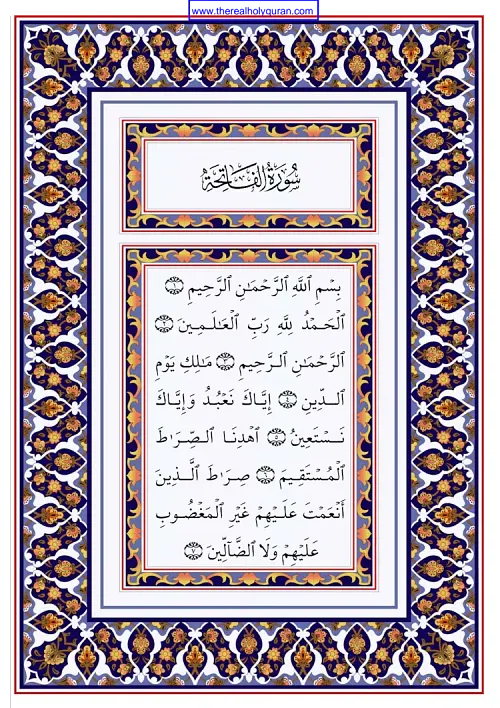 www.therealholyquran.com
سُورَةُ الفَاتِحَةِ
بِسۡمِ ٱللَّهِ ٱلرَّحۡمَٰنِ ٱلرَّحِيمِ ١
ٱلۡحَمۡدُ لِلَّهِ رَبِّ ٱلۡعَٰلَمِينَ ٢
ٱلرَّحۡمَٰنِ ٱلرَّحِيمِ ٣ مَٰلِكِ يَوۡمِ
ٱلدِّينِ ٤ إِيَّاكَ نَعۡبُدُ وَإِيَّاكَ
نَسۡتَعِينُ ٥ ٱهۡدِنَا ٱلصِّرَٰطَ
ٱلۡمُسۡتَقِيمَ ٦ صِرَٰطَ ٱلَّذِينَ
أَنۡعَمۡتَ عَلَيۡهِمۡ غَيۡرِ ٱلۡمَغۡضُوبِ
عَلَيۡهِمۡ وَلَا ٱلضَّآلِّينَ ٧